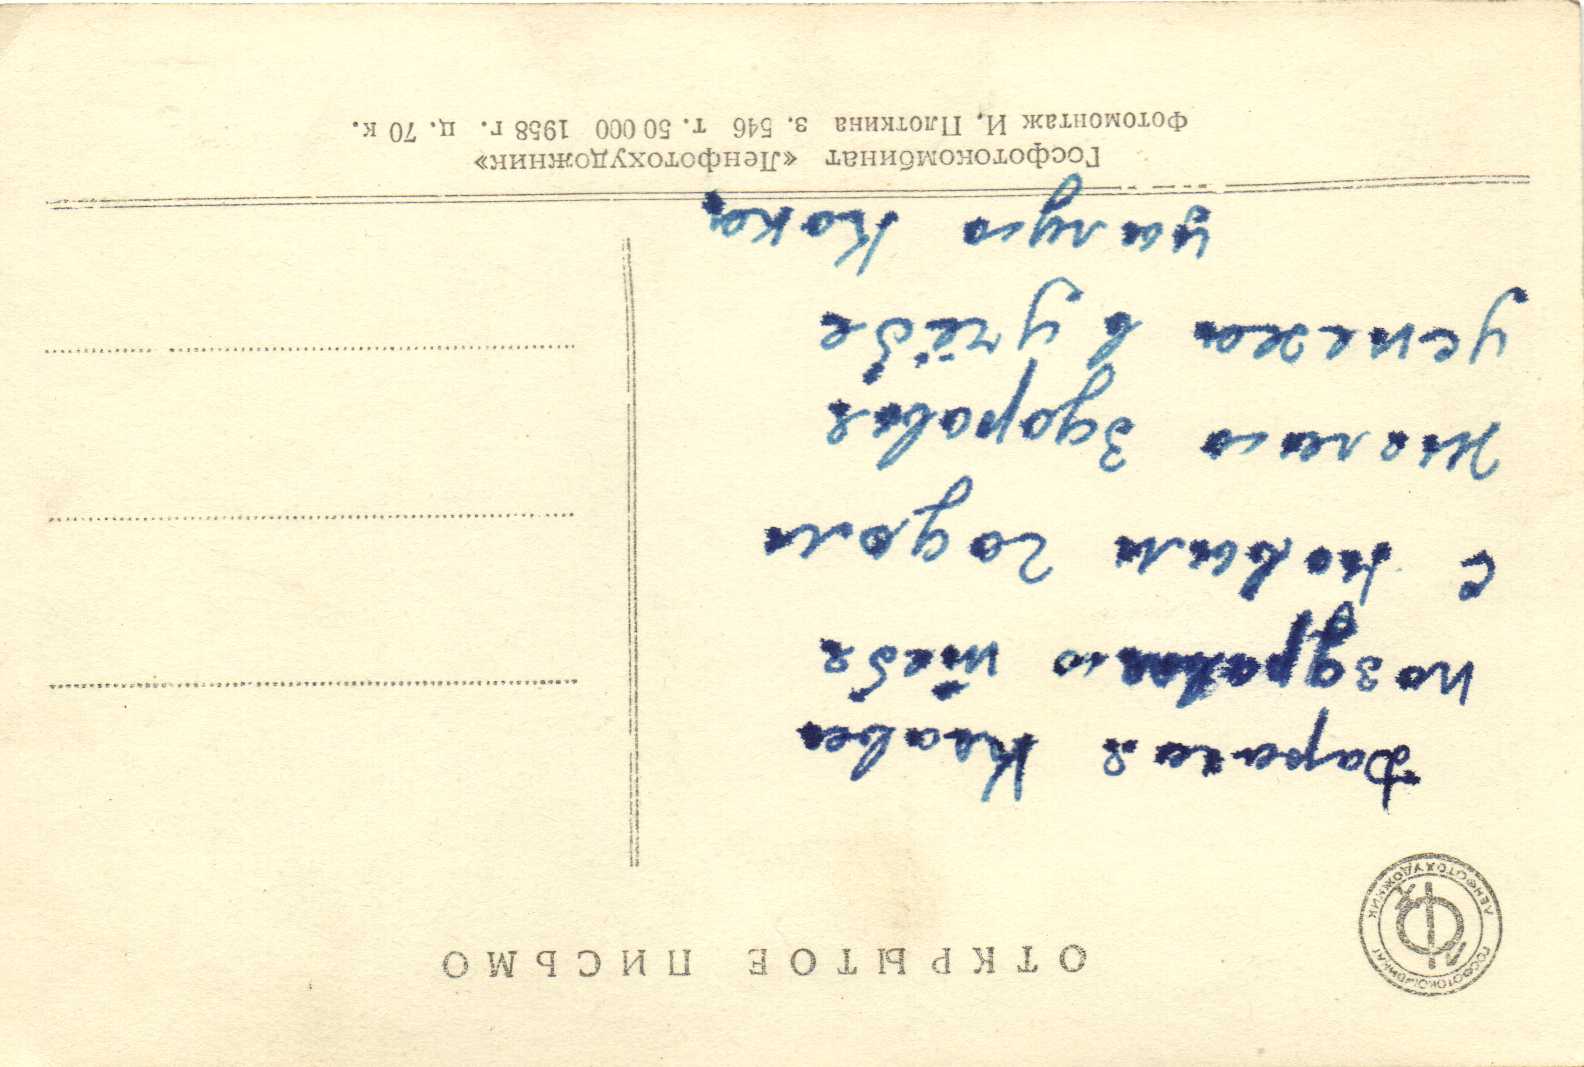 ОТКРЫТОЕ ПИСЬМО
ГОСФОТОКОМБИНАТ
ЛЕНФОТОХУДОЖНИК
Дарагая Клава
поздравляю тебя
с новым годом
желаю здоровья
успеха в учёбе
цалую
Госфотокомбинат «Ленфотохудожник»
Фотомонтаж И. Плоткина з. 546 т. 50 000 1958 г. ц. 70 к.